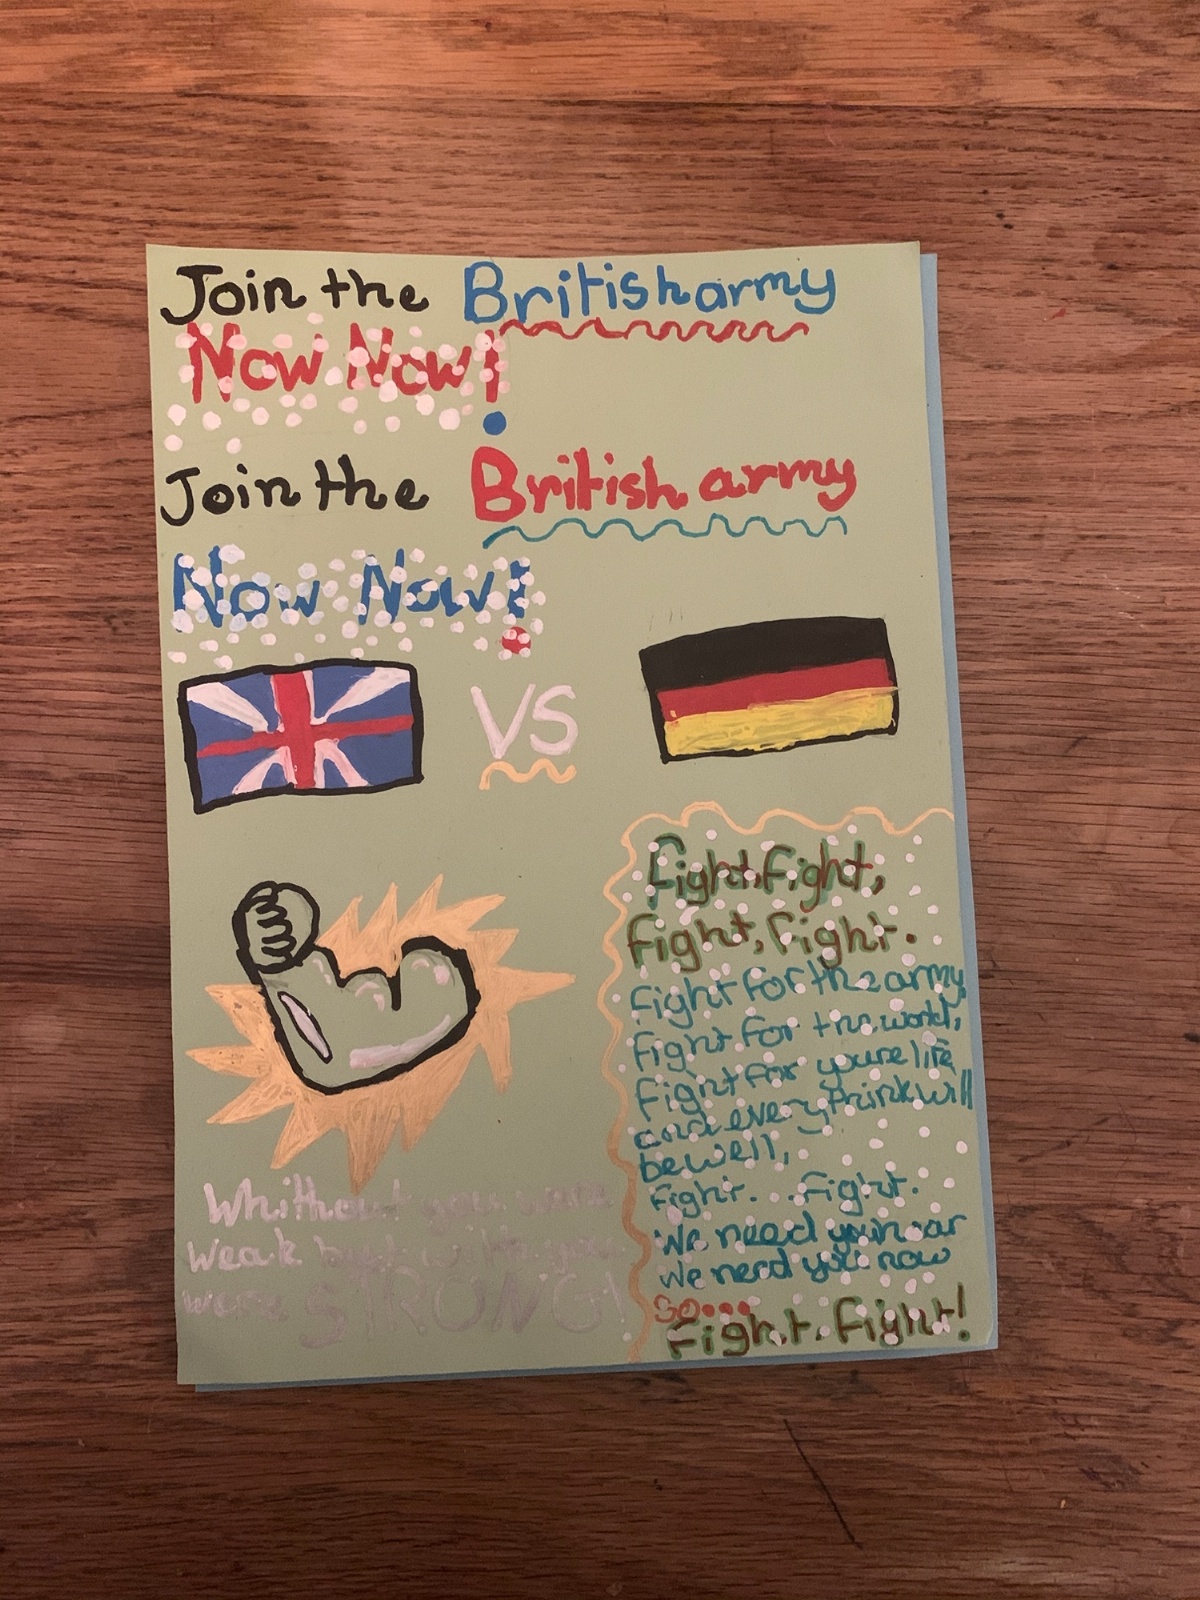 Join the British army
Now Now!
Join the British army
Now Now!
VS
Fight, Fight,
Fight, Fight.
Fight For the army,
Fight For the world,
Fight For youre life
and every think will
be well,
Fight. . . Fight.
We need you
We need you now
So...
Fight. Fight!
Whithout you were
weak but with you
were STRONG!